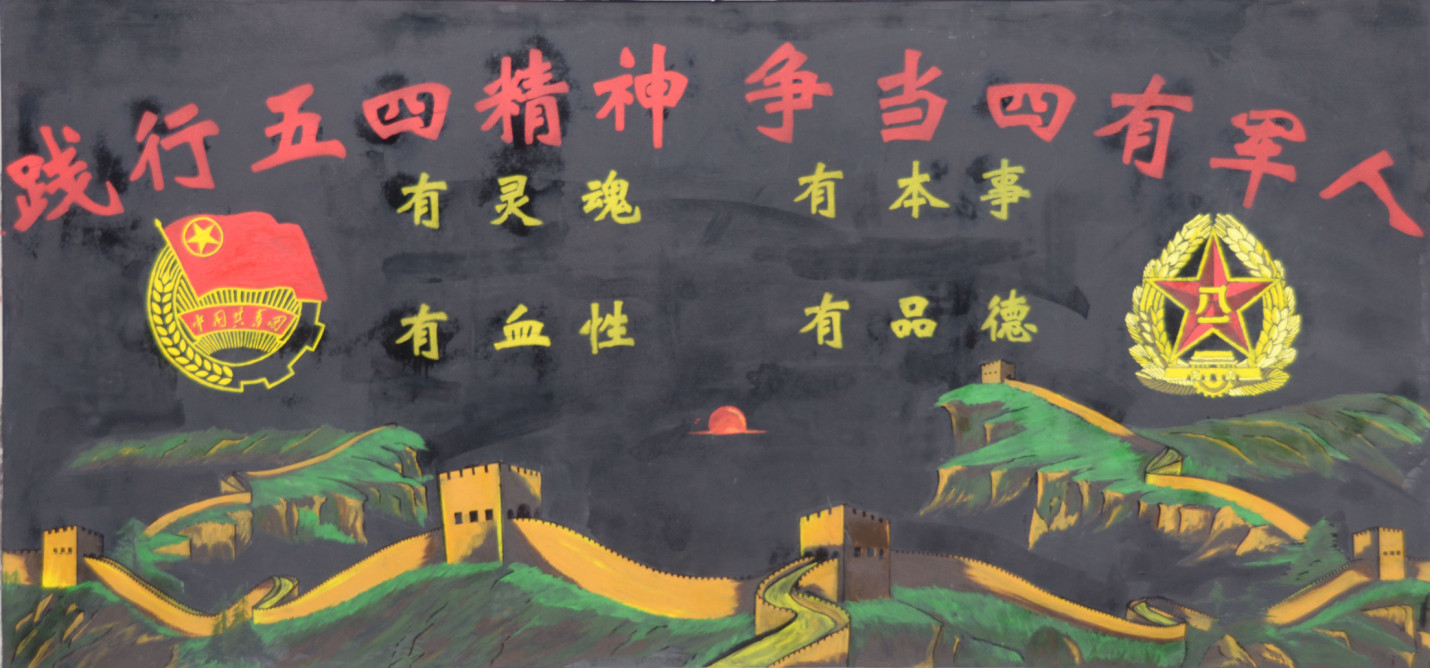 践行五四精神 争当四有军人
有灵魂 有本事
有血性 有品德
中国共青团
八一